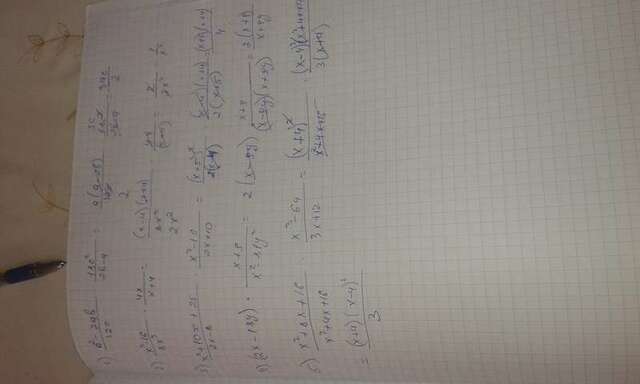 1) (a² - 2ab)/(12c) · (18c²)/(2b-a) = (a(a-2b))/(12c) · (18c²)/(2b-a) =
2) (x²-16)/(8x³) · (4x)/(x+4) = ((x-4)(x+4))/(8x³) · (4x)/(x+4) =
3) (x²+10x+25)/(2x-8) · (x²-16)/(2x+10) = (x+5)²/(2(x-4)) · ((x-4)(x+4))/(2(x+5)) = ((x+5)(x+4))/4
4) (2x-18y) · (x+9)/(x²-81y²) = 2(x-9y) · (x+9)/((x-9y)(x+9y)) = (2(x+9))/(x+9y)
5) (x²+8x+16)/(x²+4x+16) · (x³-64)/(3x+12) = (x+4)²/(x²+4x+16) · ((x-4)(x²+4x+16))/(3(x+4))
= ((x+4)(x-4))/3